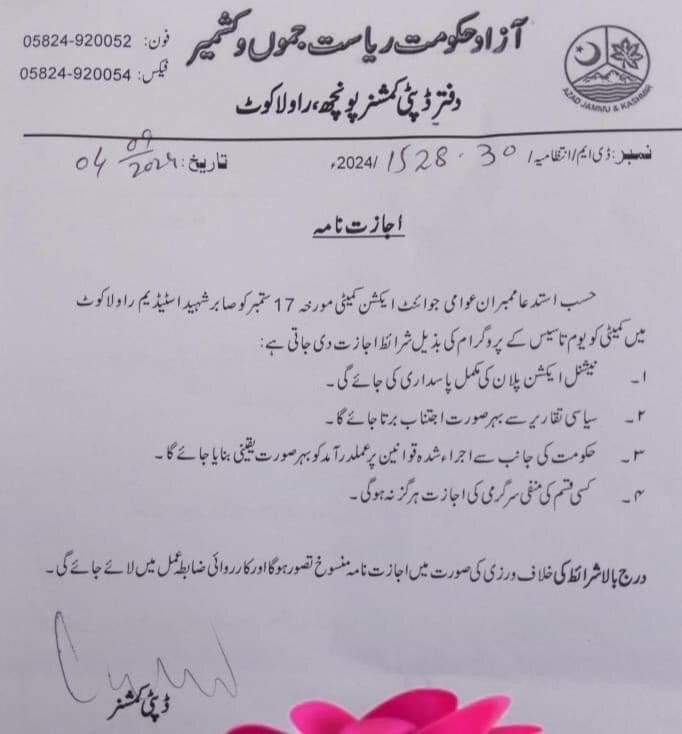 آزاد حکومت ریاست جموں و کشمیر
فون: 05824-920052
فیکس: 05824-920054
دفتر ڈپٹی کمشنر پونچھ، راولاکوٹ
AZAD JAMMU & KASHMIR
نمبر: ڈی ایم/انتظامیہ/ 1528-30 /2024ء
تاریخ: 04/09/2024
اجازت نامہ
حسب استدعا ممبران عوامی جوائنٹ ایکشن کمیٹی مورخہ 17 ستمبر کو صابر شہید اسٹیڈیم راولاکوٹ
میں کمیٹی کو یوم تاسیس کے پروگرام کی بذیل شرائط اجازت دی جاتی ہے:
۱۔ نیشنل ایکشن پلان کی مکمل پاسداری کی جائے گی۔
۲۔ سیاسی تقاریر سے بہر صورت اجتناب برتا جائے گا۔
۳۔ حکومت کی جانب سے اجراء شدہ قوانین پر عملدرآمد کو بہر صورت یقینی بنایا جائے گا۔
۴۔ کسی قسم کی منفی سرگرمی کی اجازت ہرگز نہ ہوگی۔
درج بالا شرائط کی خلاف ورزی کی صورت میں اجازت نامہ منسوخ تصور ہوگا اور کارروائی ضابطہ عمل میں لائے جائے گی۔
ڈپٹی کمشنر